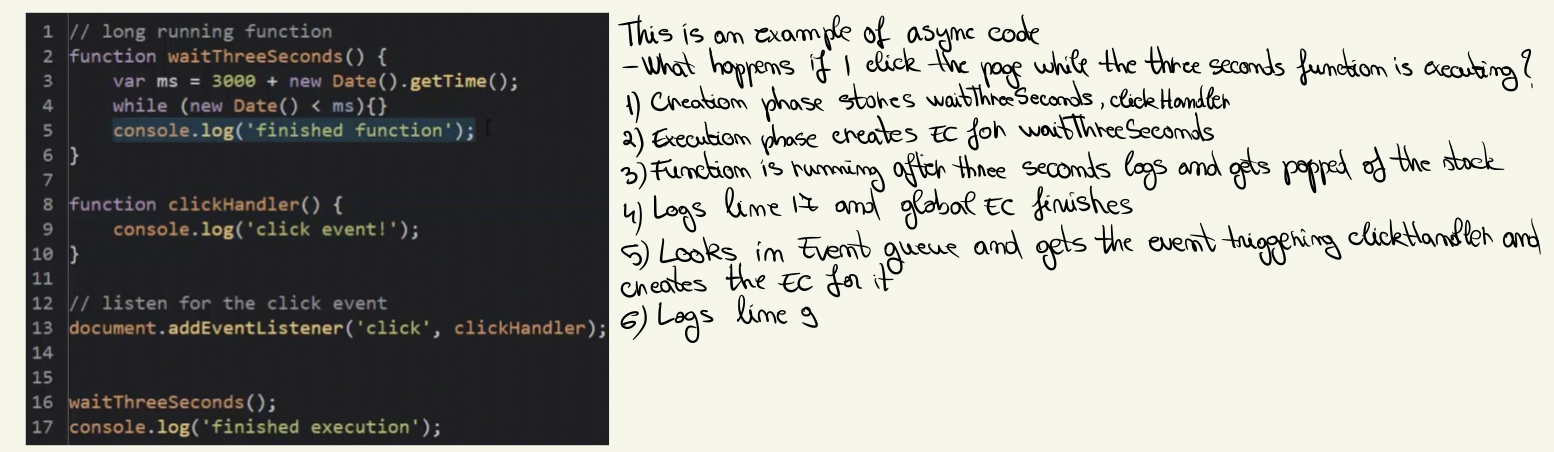 1 // long running function
2 function waitThreeSeconds() {
3 var ms = 3000 + new Date().getTime();
4 while (new Date() < ms){}
5 console.log('finished function');
6 }
7
8 function clickHandler() {
9 console.log('click event!');
10 }
11
12 // listen for the click event
13 document.addEventListener('click', clickHandler);
14
15
16 waitThreeSeconds();
17 console.log('finished execution');
This is an example of async code
- What happens if I click the page while the three seconds function is executing?
1) Creation phase stores waitThreeSeconds, clickHandler
2) Execution phase creates EC for waitThreeSeconds
3) Function is running after three seconds logs and gets popped of the stack
4) Logs line 17 and global EC finishes
5) Looks in Event queue and gets the event triggering clickHandler and
creates the EC for it
6) Logs line 9